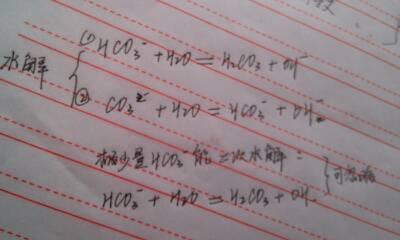 水解 ① HCO₃⁻ + H₂O = H₂CO₃ + OH⁻
② CO₃²⁻ + H₂O = HCO₃⁻ + OH⁻
极少量HCO₃⁻能二次水解:
HCO₃⁻ + H₂O = H₂CO₃ + OH⁻ } 可忽略